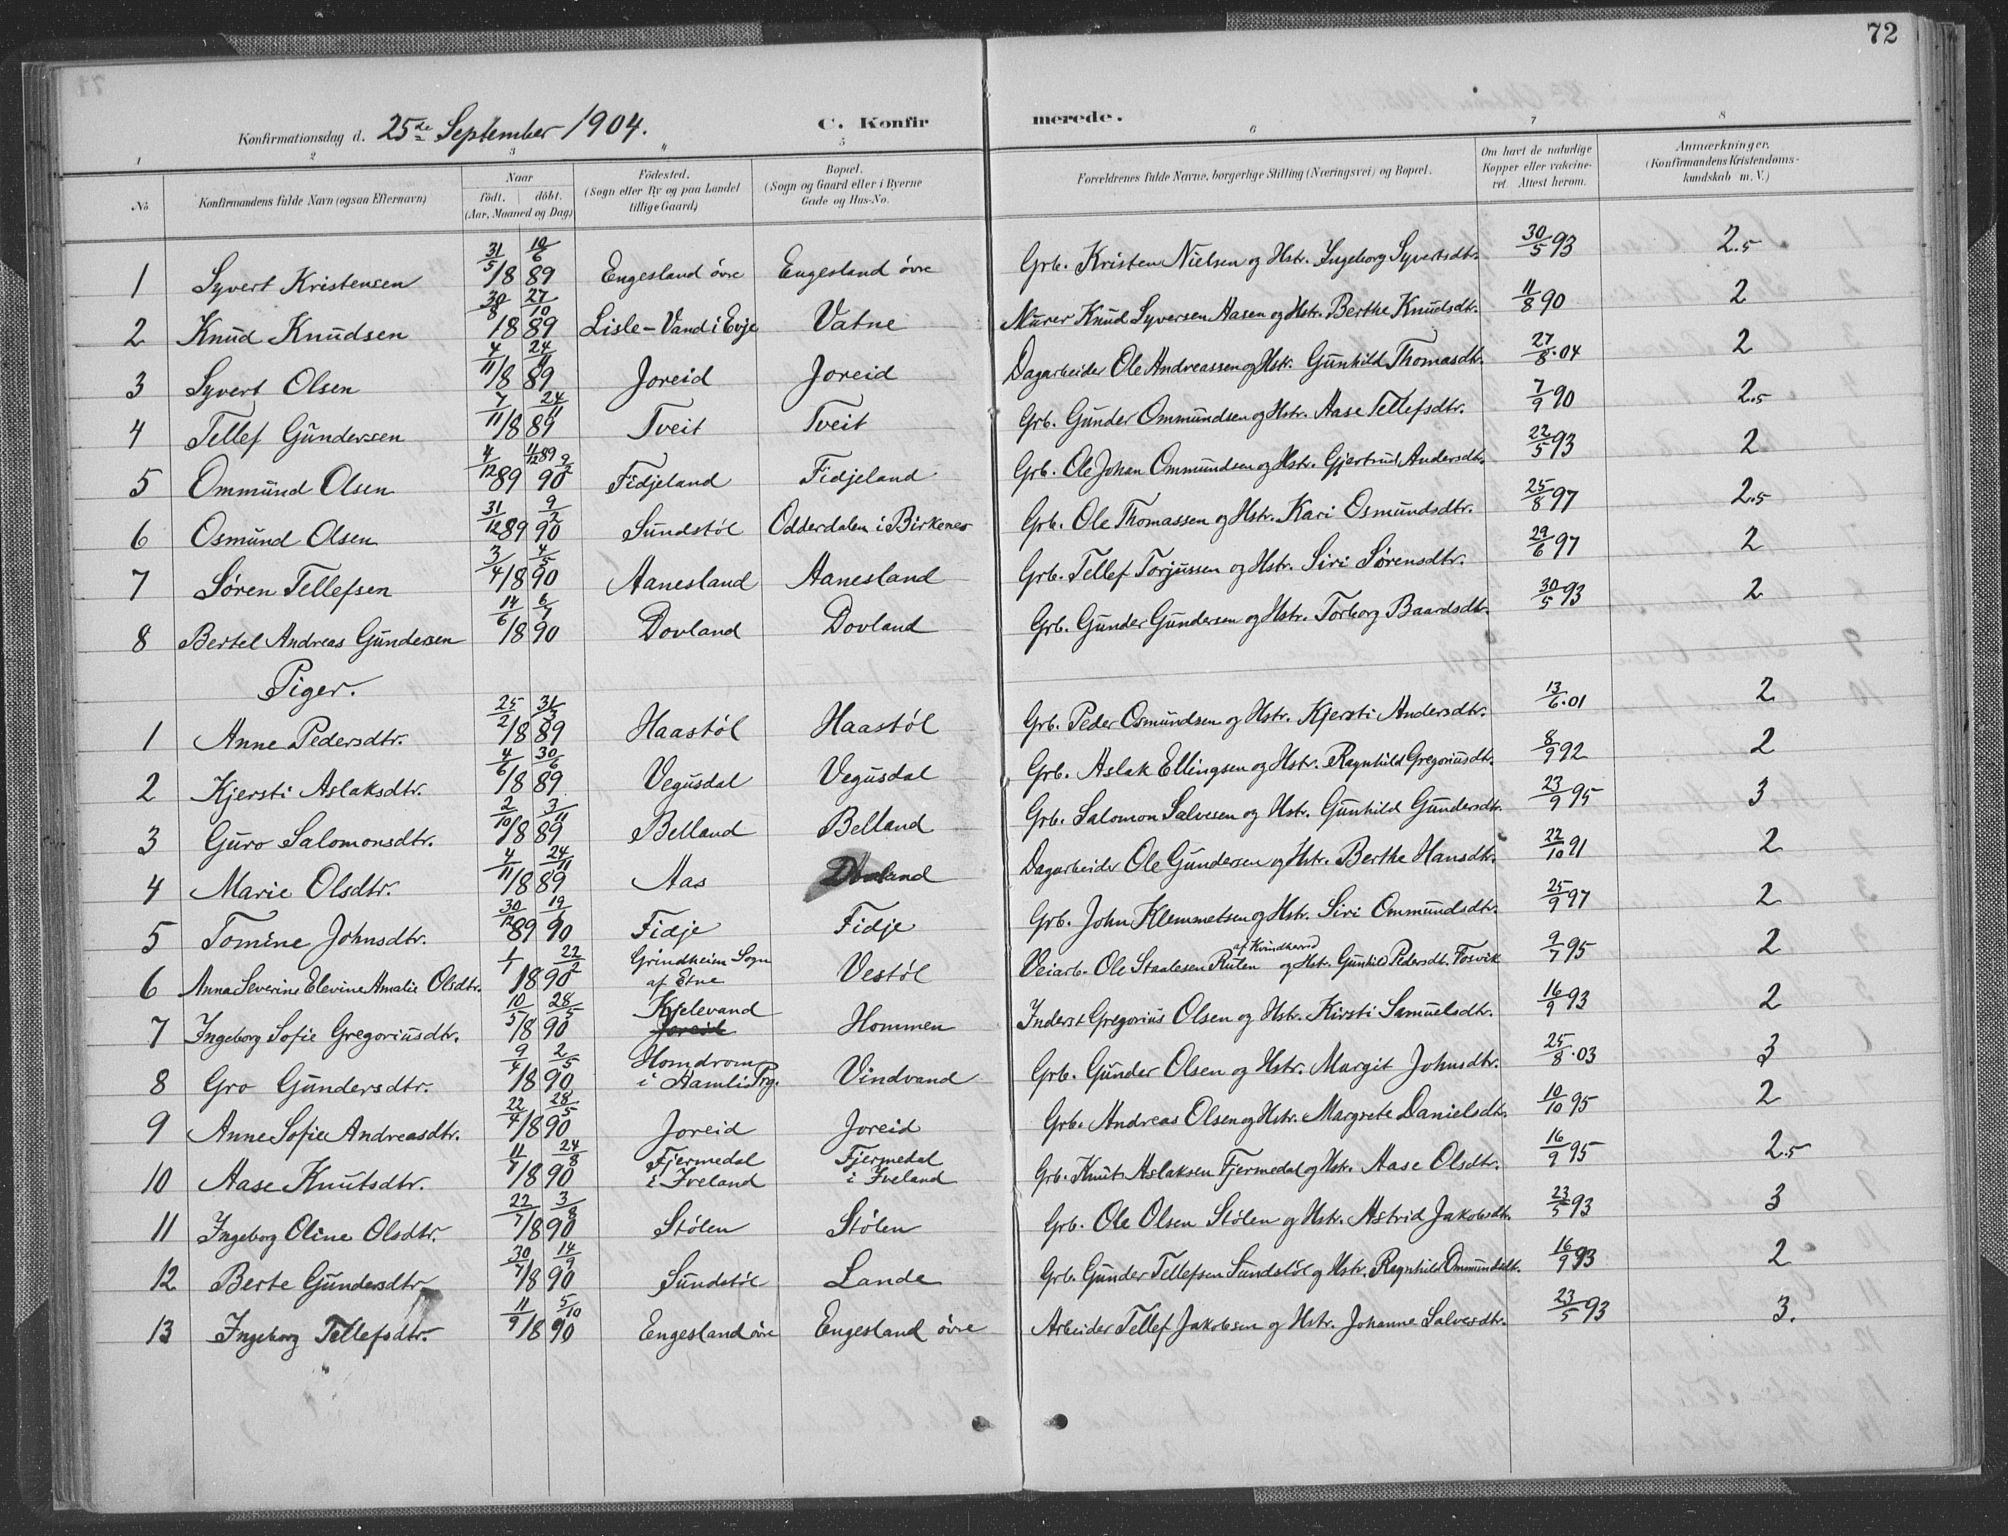 72
Konfirmationsdag d. 25de September 1904. C. Konfirmerede.
1 2 3 4 5 6 7 8
No Konfirmandens fulde Navn (ogsaa Efternavn) Naar födt. döbt. (Aar, Maaned og Dag) Födested. (Sogn eller By og paa Landet tillige Gaard) Bopæl. (Sogn og Gaard eller i Byerne Gade og Hus-No. Forældrenes fulde Navne, borgerlige Stilling (Næringsvei) og Bopæl. Om havt de naturlige Kopper eller vakcineret. Attest herom. Anmærkninger. (Konfirmandens Kristendomskundskab m. V.)
1 Syvert Kristensen 31/5 18 10/6 89 Engesland övre Engesland övre Grb. Kristen Nielsen og Hstr. Ingeborg Syvertsdtr. 30/5 93 2.5
2 Knud Knudsen 30/8 18 27/10 89 Lisle-Vand i Evje Vatne Murer Knud Syversen Aasen og Hstr. Berthe Knudsdtr. 11/8 90 2
3 Syvert Olsen 4/11 18 24/11 89 Joreid Joreid Dagarbeider Ole Andreassen og Hstr. Gunhild Thomasdtr. 27/8.04 2
4 Tellef Gundersen 7/11 18 24/11 89 Tveit Tveit Grb. Gunder Ommundsen og Hstr. Aase Tellefsdtr. 7/9 90 2.5
5 Ommund Olsen 4/12 89 11/12 89 9/2 90 Fidjeland Fidjeland Grb. Ole Johan Ommundsen og Hstr. Gjertrud Andersdtr. 22/5 93 2
6 Osmund Olsen 31/12 89 9/2 90 Sundstöl Odderdalen i Birkenes Grb. Ole Thomassen og Hstr. Kari Osmundsdtr. 25/8 97 2.5
7 Sören Tellefsen 3/4 18 4/5 90 Aanesland Aanesland Grb. Tellef Torjussen og Hstr. Siri Sörensdtr. 29/6 97 2
8 Bertel Andreas Gundersen 14/6 18 6/7 90 Dovland Dovland Grb. Gunder Gundersen og Hstr. Torborg Baardsdtr. 30/5 93 2
Piger.
1 Anne Pedersdtr. 25/2 18 31/3 89 Haastöl Haastöl Grb. Peder Osmundsen og Hstr. Kjersti Andersdtr. 13/6.01 2
2 Kjersti Aslaksdtr. 4/6 18 30/6 89 Vegusdal Vegusdal Grb. Aslak Ellingsen og Hstr. Ragnhild Gregoriusdtr. 8/9 92 2
3 Guro Salomonsdtr. 2/10 18 3/11 89 Belland Belland Grb. Salomon Salvesen og Hstr. Gunhild Gundersdtr. 23/9 95 3
4 Marie Olsdtr. 4/11 18 24/11 89 Aas Dovland Dagarbeider Ole Gundersen og Hstr. Berthe Hansdtr. 22/10 91 2
5 Tomine Johnsdtr. 30/12 89 19/1 90 Fidje Fidje Grb. John Klemmetsen og Hstr. Siri Ommundsdtr. 25/9 97 2
6 Anna Severine Elevine Amalie Olsdtr. 1/1 18 22/2 90 Grindheim Sogn af Etne Vestöl Veiarb. Ole Staalesen Rulen af Kvindherred og Hstr. Gunhild Pedersdt. Fosvik 9/7 95 2
7 Ingeborg Sofie Gregoriusdtr. 10/5 18 28/5 90 Kjelevand Joreid Hommen Inderst Gregorius Olsen og Hstr. Kirsti Samuelsdtr. 16/9 93 2
8 Gro Gundersdtr. 9/4 18 2/5 90 Homdrom i Aamli Prg. Vindvand Grb. Gunder Olsen og Hstr. Margit Johnsdtr. 25/8.03 3
9 Anne Sofie Andreasdtr. 22/4 18 28/5 90 Joreid Joreid Grb. Andreas Olsen og Hstr. Margrete Danielsdtr. 10/10 95 2
10 Aase Knutsdtr. 11/7 18 24/8 90 Fjermedal i Iveland Fjermedal i Iveland Grb. Knut Aslaksen Fjermedal og Hstr. Aase Olsdtr. 16/9 95 2.5
11 Ingeborg Oline Olsdtr. 22/7 18 3/8 90 Stölen Stölen Grb. Ole Olsen Stölen og Hstr. Astrid Jakobsdtr. 23/5 93 3
12 Berte Gundersdtr 30/7 18 14/9 90 Sundstöl Lande Grb. Gunder Tellefsen Sundstöl og Hstr. Ragnhild Ommundsdtr. 16/9 93 2
13 Ingeborg Tellefsdtr. 11/9 18 5/10 90 Engesland övre Engesland övre Arbeider Tellef Jakobsen og Hstr. Johanne Salvesdtr. 23/5 93 3.